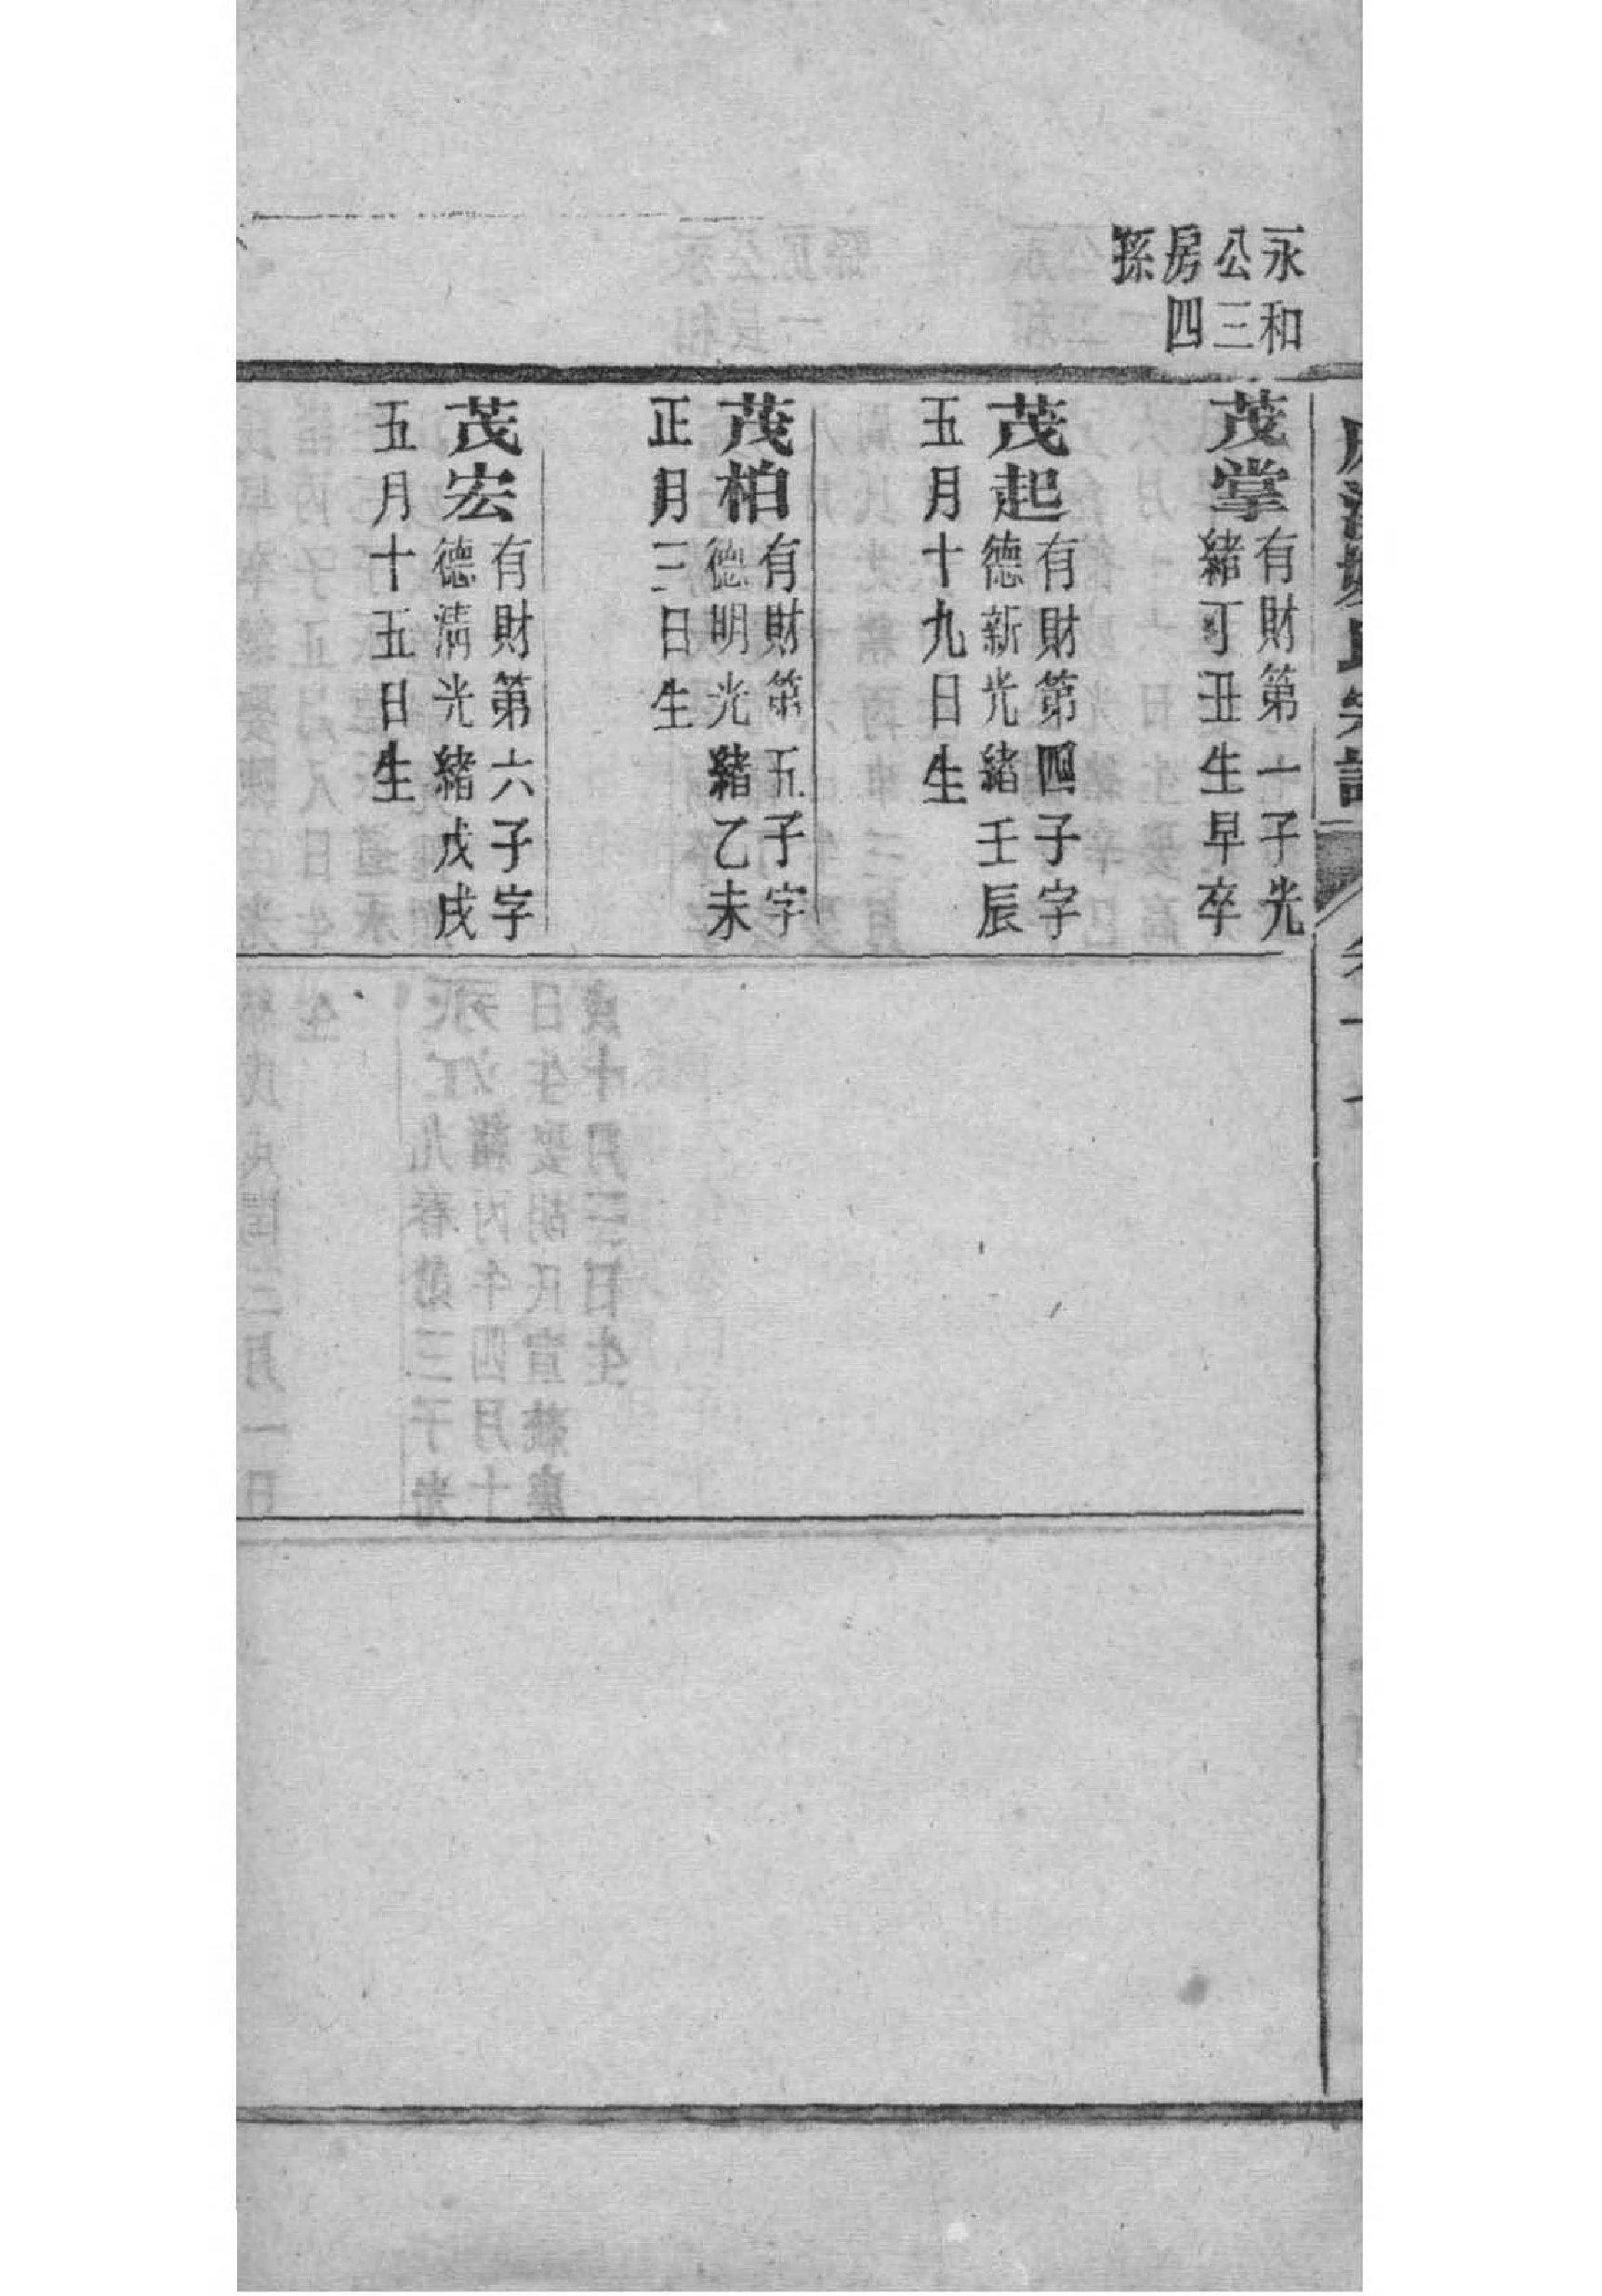 永和
公三
房四
孫
茂掌
有財第 子光
緒丁丑生早卒
茂起
有財第四子字
德新光緒壬辰
五月十九日生
茂柏
有財第五子字
德明光緒乙未
正月三日生
茂宏
有財第六子字
德淸光緒戊戌
五月十五日生